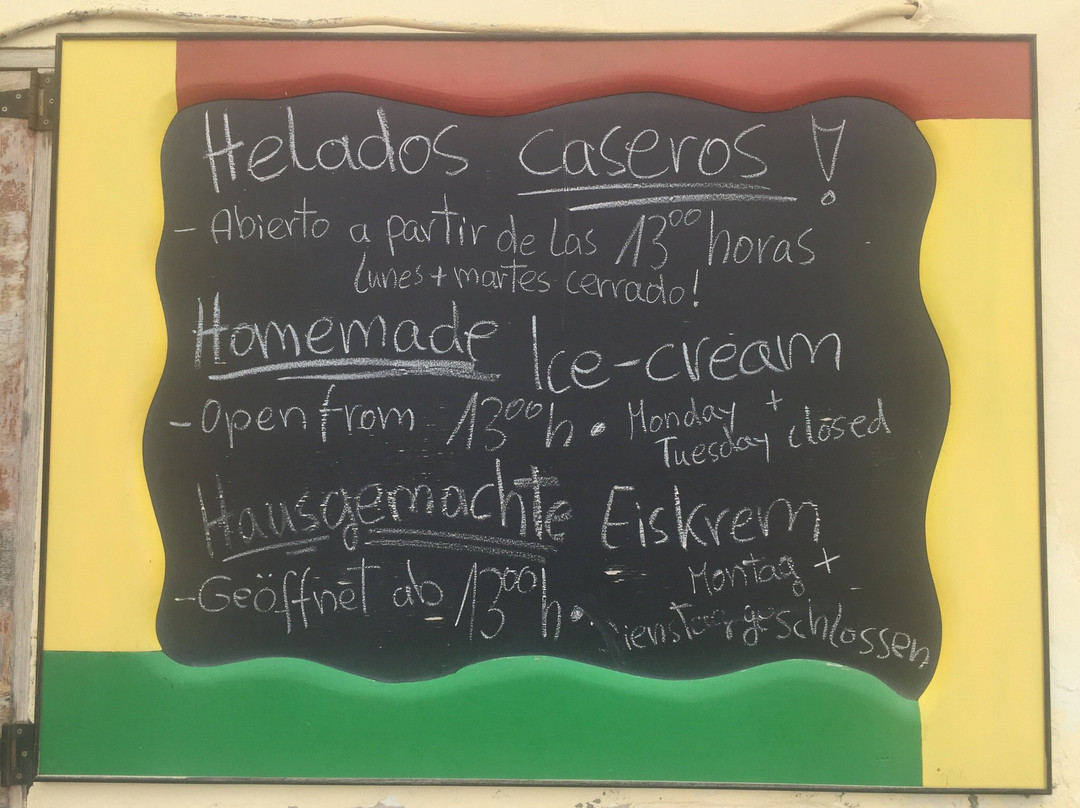 Helados caseros!
- Abierto a partir de las 13⁰⁰ horas
lunes + martes cerrado!
Homemade Ice-cream
- Open from 13⁰⁰ h. Monday +
Tuesday closed
Hausgemachte Eiskrem
- Geöffnet ab 13⁰⁰ h. Montag +
geschlossen